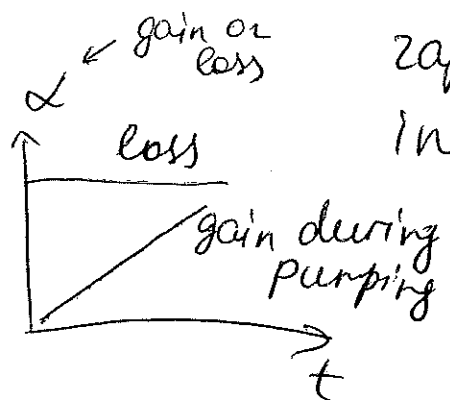 gain or
loss
α
loss
gain during
pumping
t
in